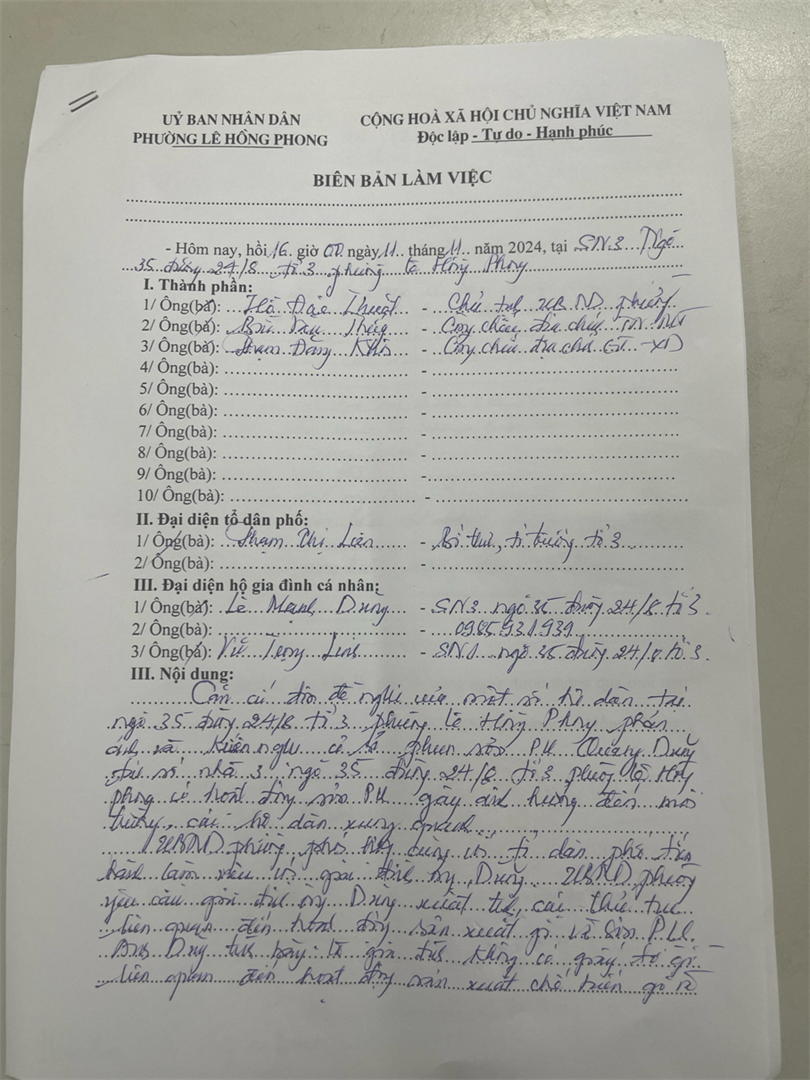 UỶ BAN NHÂN DÂN
PHƯỜNG LÊ HỒNG PHONG
CỘNG HOÀ XÃ HỘI CHỦ NGHĨA VIỆT NAM
Độc lập - Tự do - Hạnh phúc
BIÊN BẢN LÀM VIỆC
- Hôm nay, hồi 16 giờ 00 ngày 11 tháng 11 năm 2024, tại SN 3 Ngõ
35 đường 24/8 tổ 3 phường Lê Hồng Phong
I. Thành phần:
1/ Ông(bà): Đắc Thuật - Chủ tịch UBND phường
2/ Ông(bà): Bùi Văn - Công chức địa chính TN MT
3/ Ông(bà): Phạm Đăng - Công chức địa chính GT - XD
4/ Ông(bà): -
5/ Ông(bà): -
6/ Ông(bà): -
7/ Ông(bà): -
8/ Ông(bà): -
9/ Ông(bà): -
10/ Ông(bà): -
II. Đại diện tổ dân phố:
1/ Ông(bà): Phạm Thị Liên - Bí thư, tổ trưởng tổ 3
2/ Ông(bà): -
III. Đại diện hộ gia đình cá nhân:
1/ Ông(bà): Lê Mạnh Dũng - SN 3 ngõ 35 đường 24/8 tổ 3.
2/ Ông(bà): - 0985.931.939
3/ Ông(bà): Vũ Trọng - SN 1 ngõ 35 đường 24/8 tổ 3.
III. Nội dung:
Căn cứ đơn đề nghị của một số hộ dân tại
ngõ 35 đường 24/8 tổ 3 phường Lê Hồng Phong phản
ánh và kiến nghị cơ sở phun sơn P.U Quang Dũng
địa số nhà 3 ngõ 35 đường 24/8 tổ 3 phường Lê Hồng
Phong có hoạt động sơn P.U gây ảnh hưởng đến môi
trường, các hộ dân xung quanh
UBND phường phối hợp cùng tổ dân phố tiến
hành làm việc với gia đình ông Dũng. UBND phường
yêu cầu gia đình ông Dũng xuất trình các thủ tục
liên quan đến hoạt động sản xuất gỗ và sơn P.U.
Ông Dũng trình bày: là gia đình không có giấy tờ gì
liên quan đến hoạt động sản xuất chế biến gỗ và